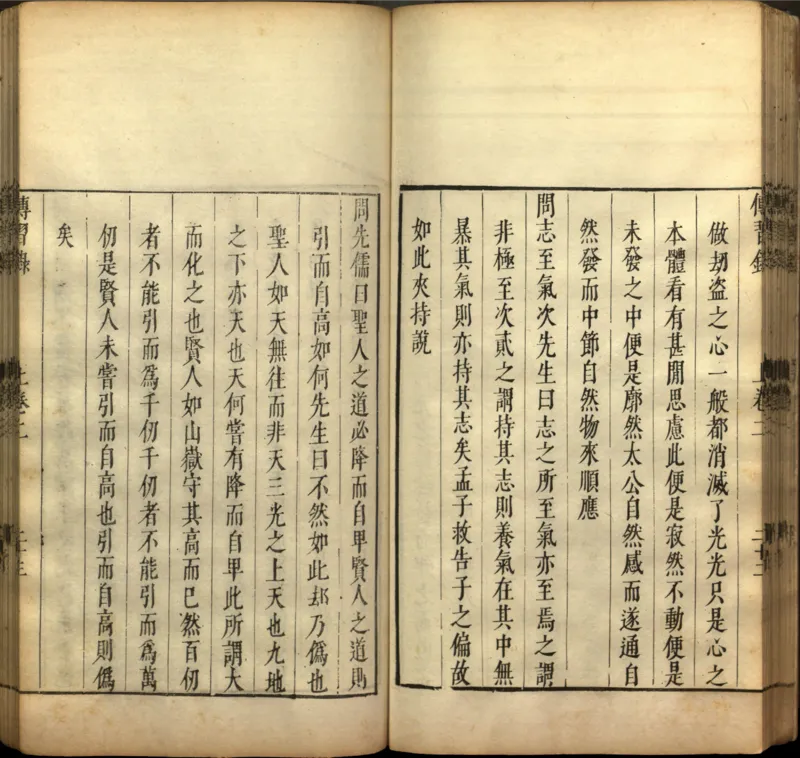 傳習錄
上卷二
二十三
做劫盜之心一般都消滅了光光只是心之
本體看有甚閒思慮此便是寂然不動便是
未發之中便是廓然太公自然感而遂通自
然發而中節自然物來順應
問志至氣次先生曰志之所至氣亦至焉之謂
非極至次貳之謂持其志則養氣在其中無
暴其氣則亦持其志矣孟子救告子之偏故
如此夾持說
問先儒曰聖人之道必降而自卑賢人之道則
引而自高如何先生曰不然如此却乃僞也
聖人如天無往而非天三光之上天也九地
之下亦天也天何嘗有降而自卑此所謂大
而化之也賢人如山嶽守其高而已然百仞
者不能引而爲千仞千仞者不能引而爲萬
仞是賢人未嘗引而自高也引而自高則僞
矣
傳習錄
上卷二
二十三